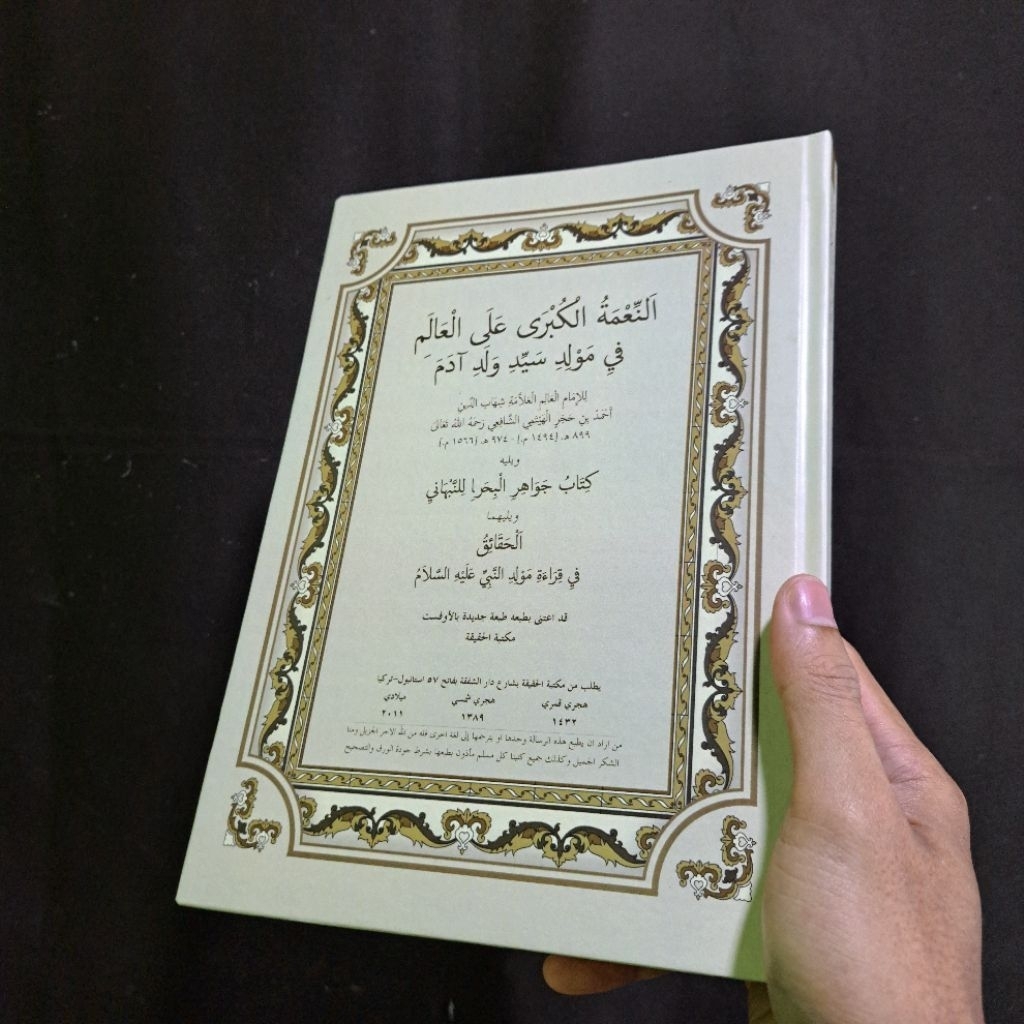 اَلنِّعْمَةُ الْكُبْرَى عَلَى الْعَالَمِ
فِي مَوْلِدِ سَيِّدِ وَلَدِ آدَمَ
لِلإِمَامِ الْعَالِمِ الْعَلاَّمَةِ شِهَابِ الدِّينِ
أَحْمَدَ بْنِ حَجَرٍ الْهَيْتَمِي الشَّافِعِي رَحِمَهُ اللهُ تَعَالَى
٨٩٩ هـ. [١٤٩٤ م.] - ٩٧٤ هـ. [١٥٦٦ م.]
ويليه
كِتَابُ جَوَاهِرِ الْبِحَراِ لِلنَّبْهَانِي
ويليهما
اَلْحَقَائِقُ
فِي قِرَاءَةِ مَوْلِدِ النَّبِيِّ عَلَيْهِ السَّلاَمُ
قد اعتنى بطبعه طبعة جديدة بالأوفست
مكتبة الحقيقة
يطلب من مكتبة الحقيقة بشارع دار الشفقة بفاتح ٥٧ استانبول-تركيا
هجري قمري هجري شمسي ميلادي
١٤٣٢ ١٣٨٩ ٢٠١١
من اراد ان يطبع هذه الرسالة وحدها او يترجمها إلى لغة اخرى فله من الله الاجر الجزيل ومنا
الشكر الجميل وكذلك جميع كتبنا كل مسلم مأذون بطبعها بشرط جودة الورق والتصحيح